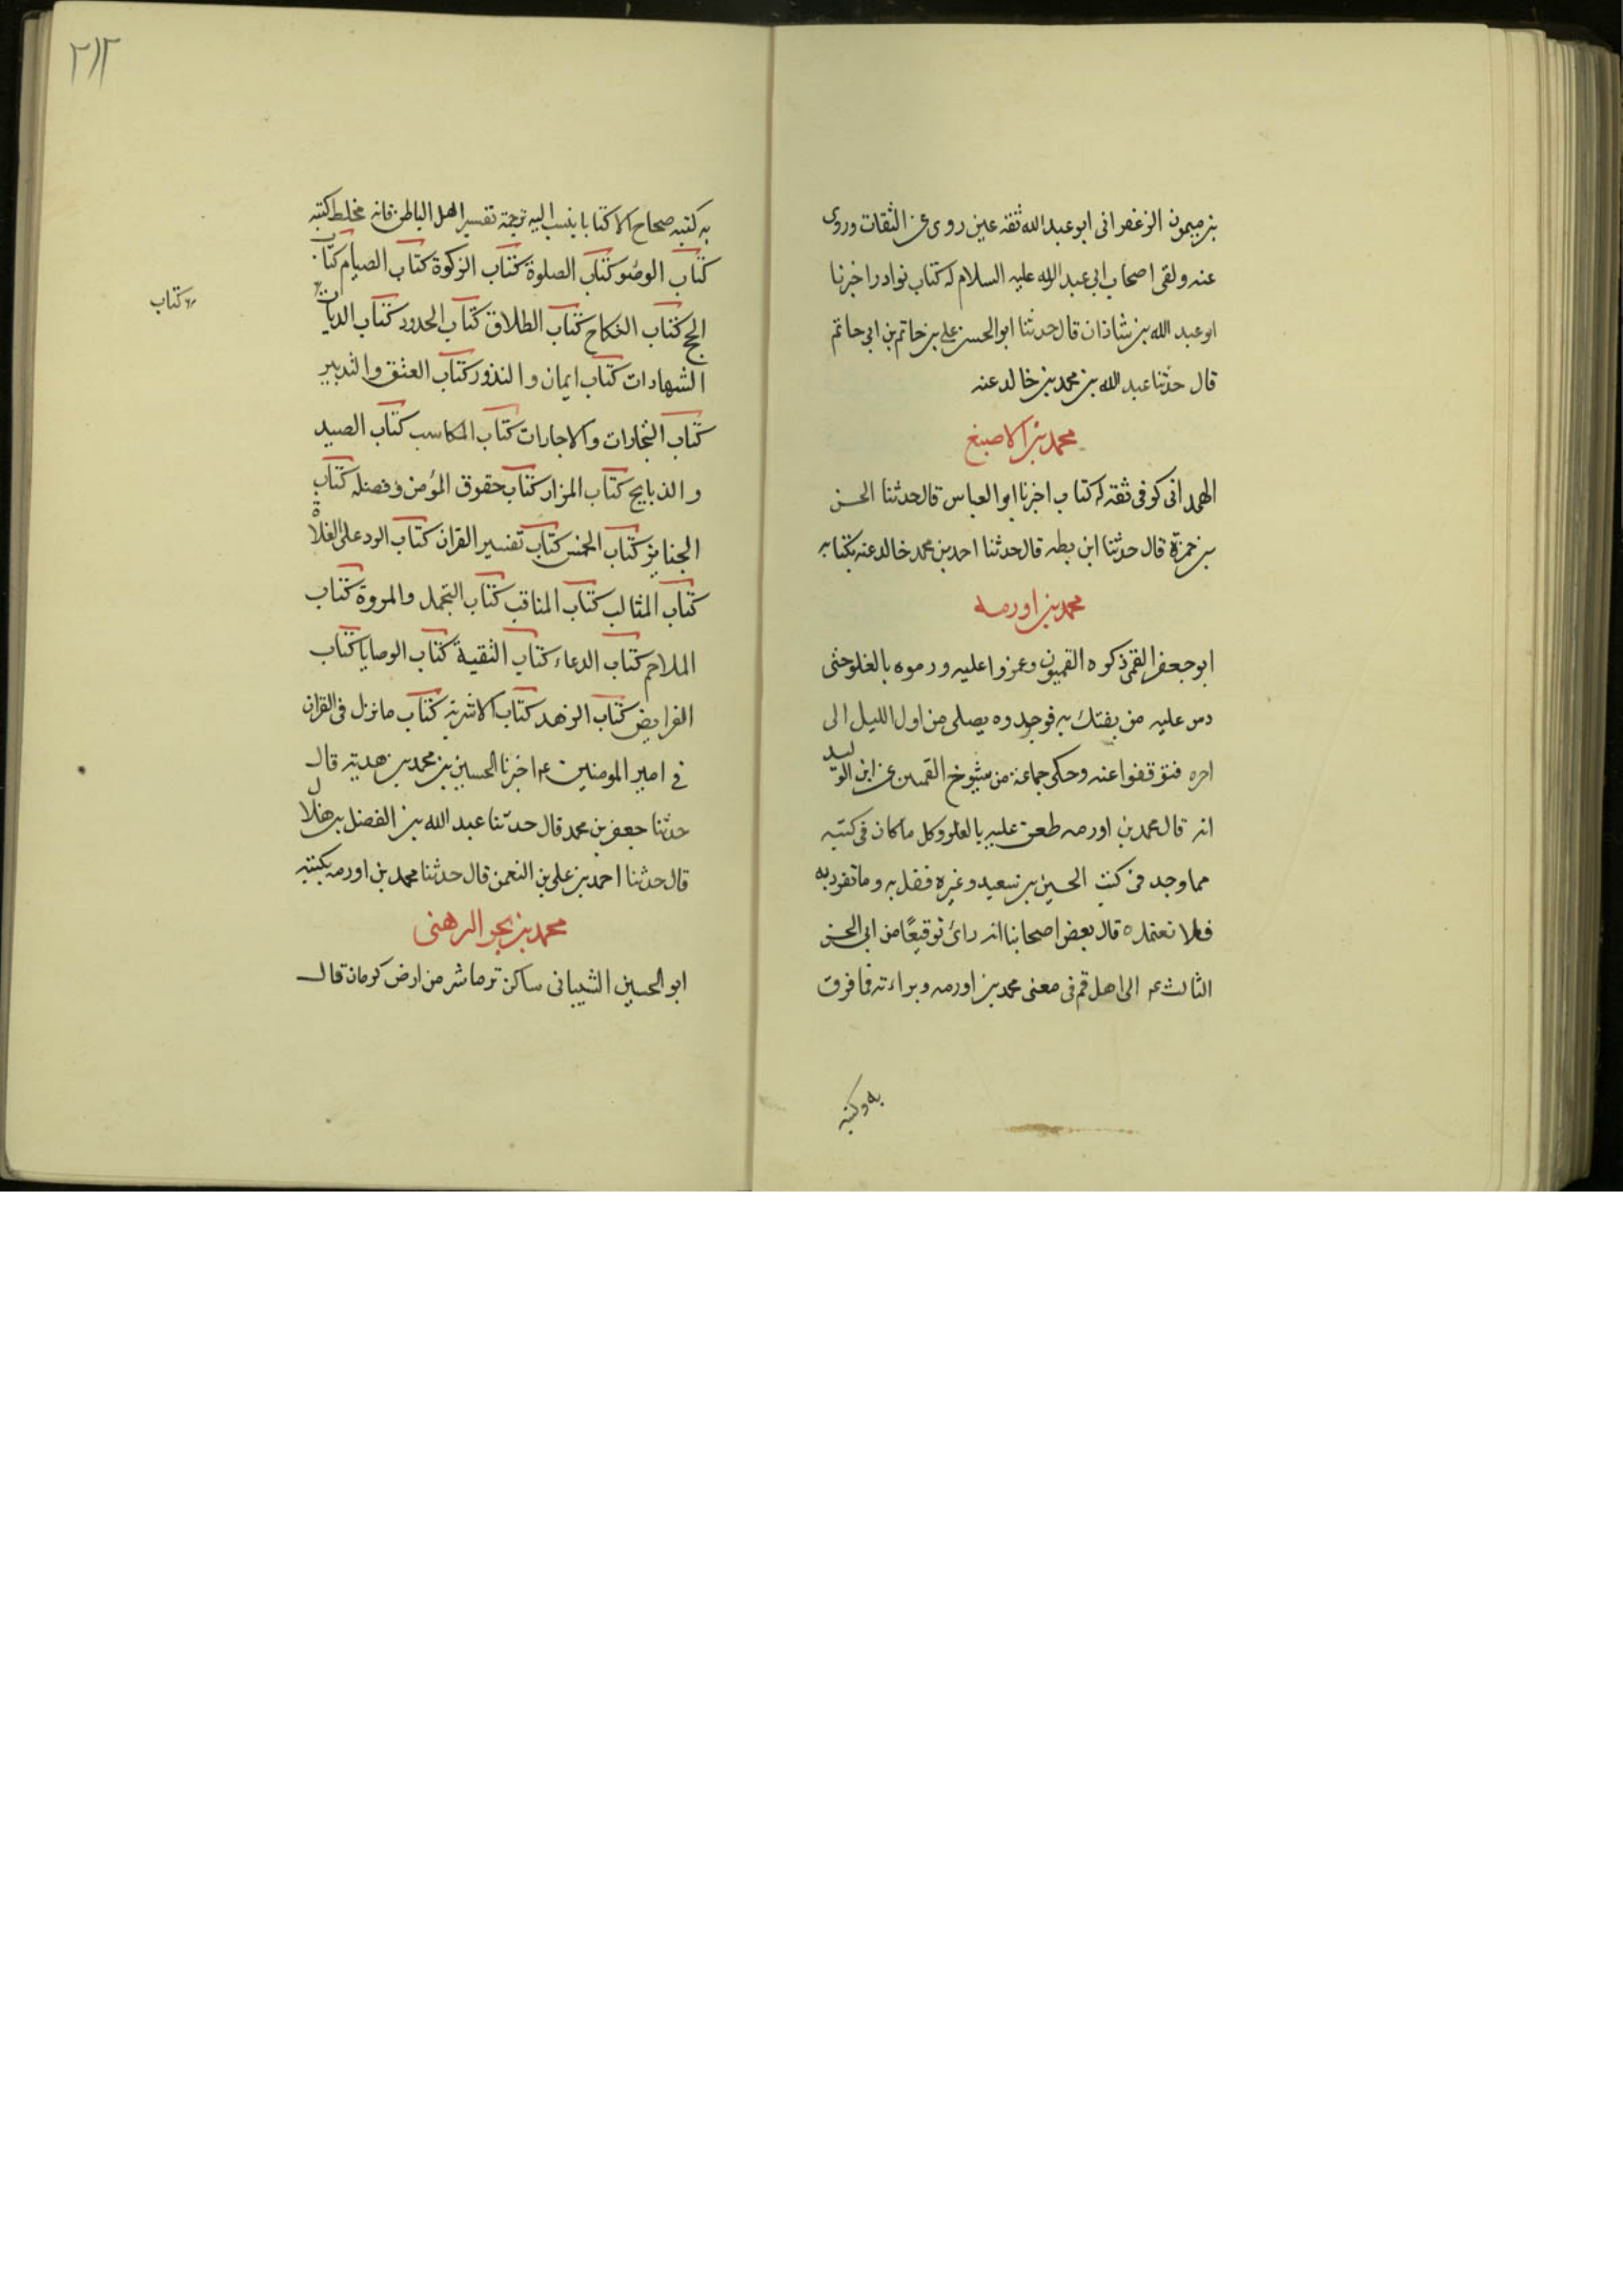 بن ميمون الزعفرانى ابو عبدالله ثقة عين روى عن الثقات وروى
عنه ولقى اصحاب ابى عبدالله عليه السلام له كتاب نوادر اخبرنا
ابو عبد الله بن شاذان قال حدثنا ابو الحسن على بن حاتم بن ابى حاتم
قال حدثنا عبد الله بن محمد بن خالد عنه
محمد بن الاصبغ
الهمدانى كوفى ثقة له كتاب اخبرنا ابو العباس قال حدثنا الحسن
بن حمزة قال حدثنا ابن بطه قال حدثنا احمد بن محمد خالد عنه بكتابه
محمد بن اورمه
ابو جعفر القمى ذكره القميون وغمزوا عليه ورموه بالغلو حتى
دس عليه من يفتك به فوجدوه يصلى من اول الليل الى
اخره فتوقفوا عنه وحكى جماعة من شيوخ القمين عن ابن الوليد
انه قال محمد بن اورمه طعن عليه بالغلو وكل ما كان فى كتبه
مما وجد فى كتب الحسين بن سعيد وغيره فقل به وما تفرد به
فلا تعتمده قال بعض اصحابنا انه راى توقيعًا من ابى الحسن
الثالث ع الى اهل قم فى معنى محمد بن اورمه وبراءته مما قرف
به وكتبه
٢١٢
به كتبه صحاح الا كتابا ينسب اليه ترجمة تفسير اهل الباطن فانه مخلط كتبه
كتاب الوضو كتاب الصلوة كتاب الزكوة كتاب الصيام كتاب
الحج كتاب النكاح كتاب الطلاق كتاب الحدود كتاب الديات
كتاب
الشهادات كتاب ايمان والنذور كتاب العتق والتدبير
كتاب التجارات والاجارات كتاب المكاسب كتاب الصيد
والذبايح كتاب المزار كتاب حقوق المؤمن وفضله كتاب
الجنايز كتاب الخمس كتاب تفسير القران كتاب الرد على الغلاة
كتاب المثالب كتاب المناقب كتاب التجمل والمروة كتاب
الملاحم كتاب الدعاء كتاب التقية كتاب الوصايا كتاب
الفرايض كتاب الزهد كتاب الاشربة كتاب ما نزل فى القران
فى امير المومنين ع اخبرنا الحسين بن محمد بن هدية قال
حدثنا جعفر بن محمد قال حدثنا عبد الله بن الفضل بن هلال
قال حدثنا احمد بن على بن النعمن قال حدثنا محمد بن اورمه بكتبه
محمد بن بحر الرهنى
ابو الحسين الشيبانى ساكن ترماشر من ارض كرمان قال